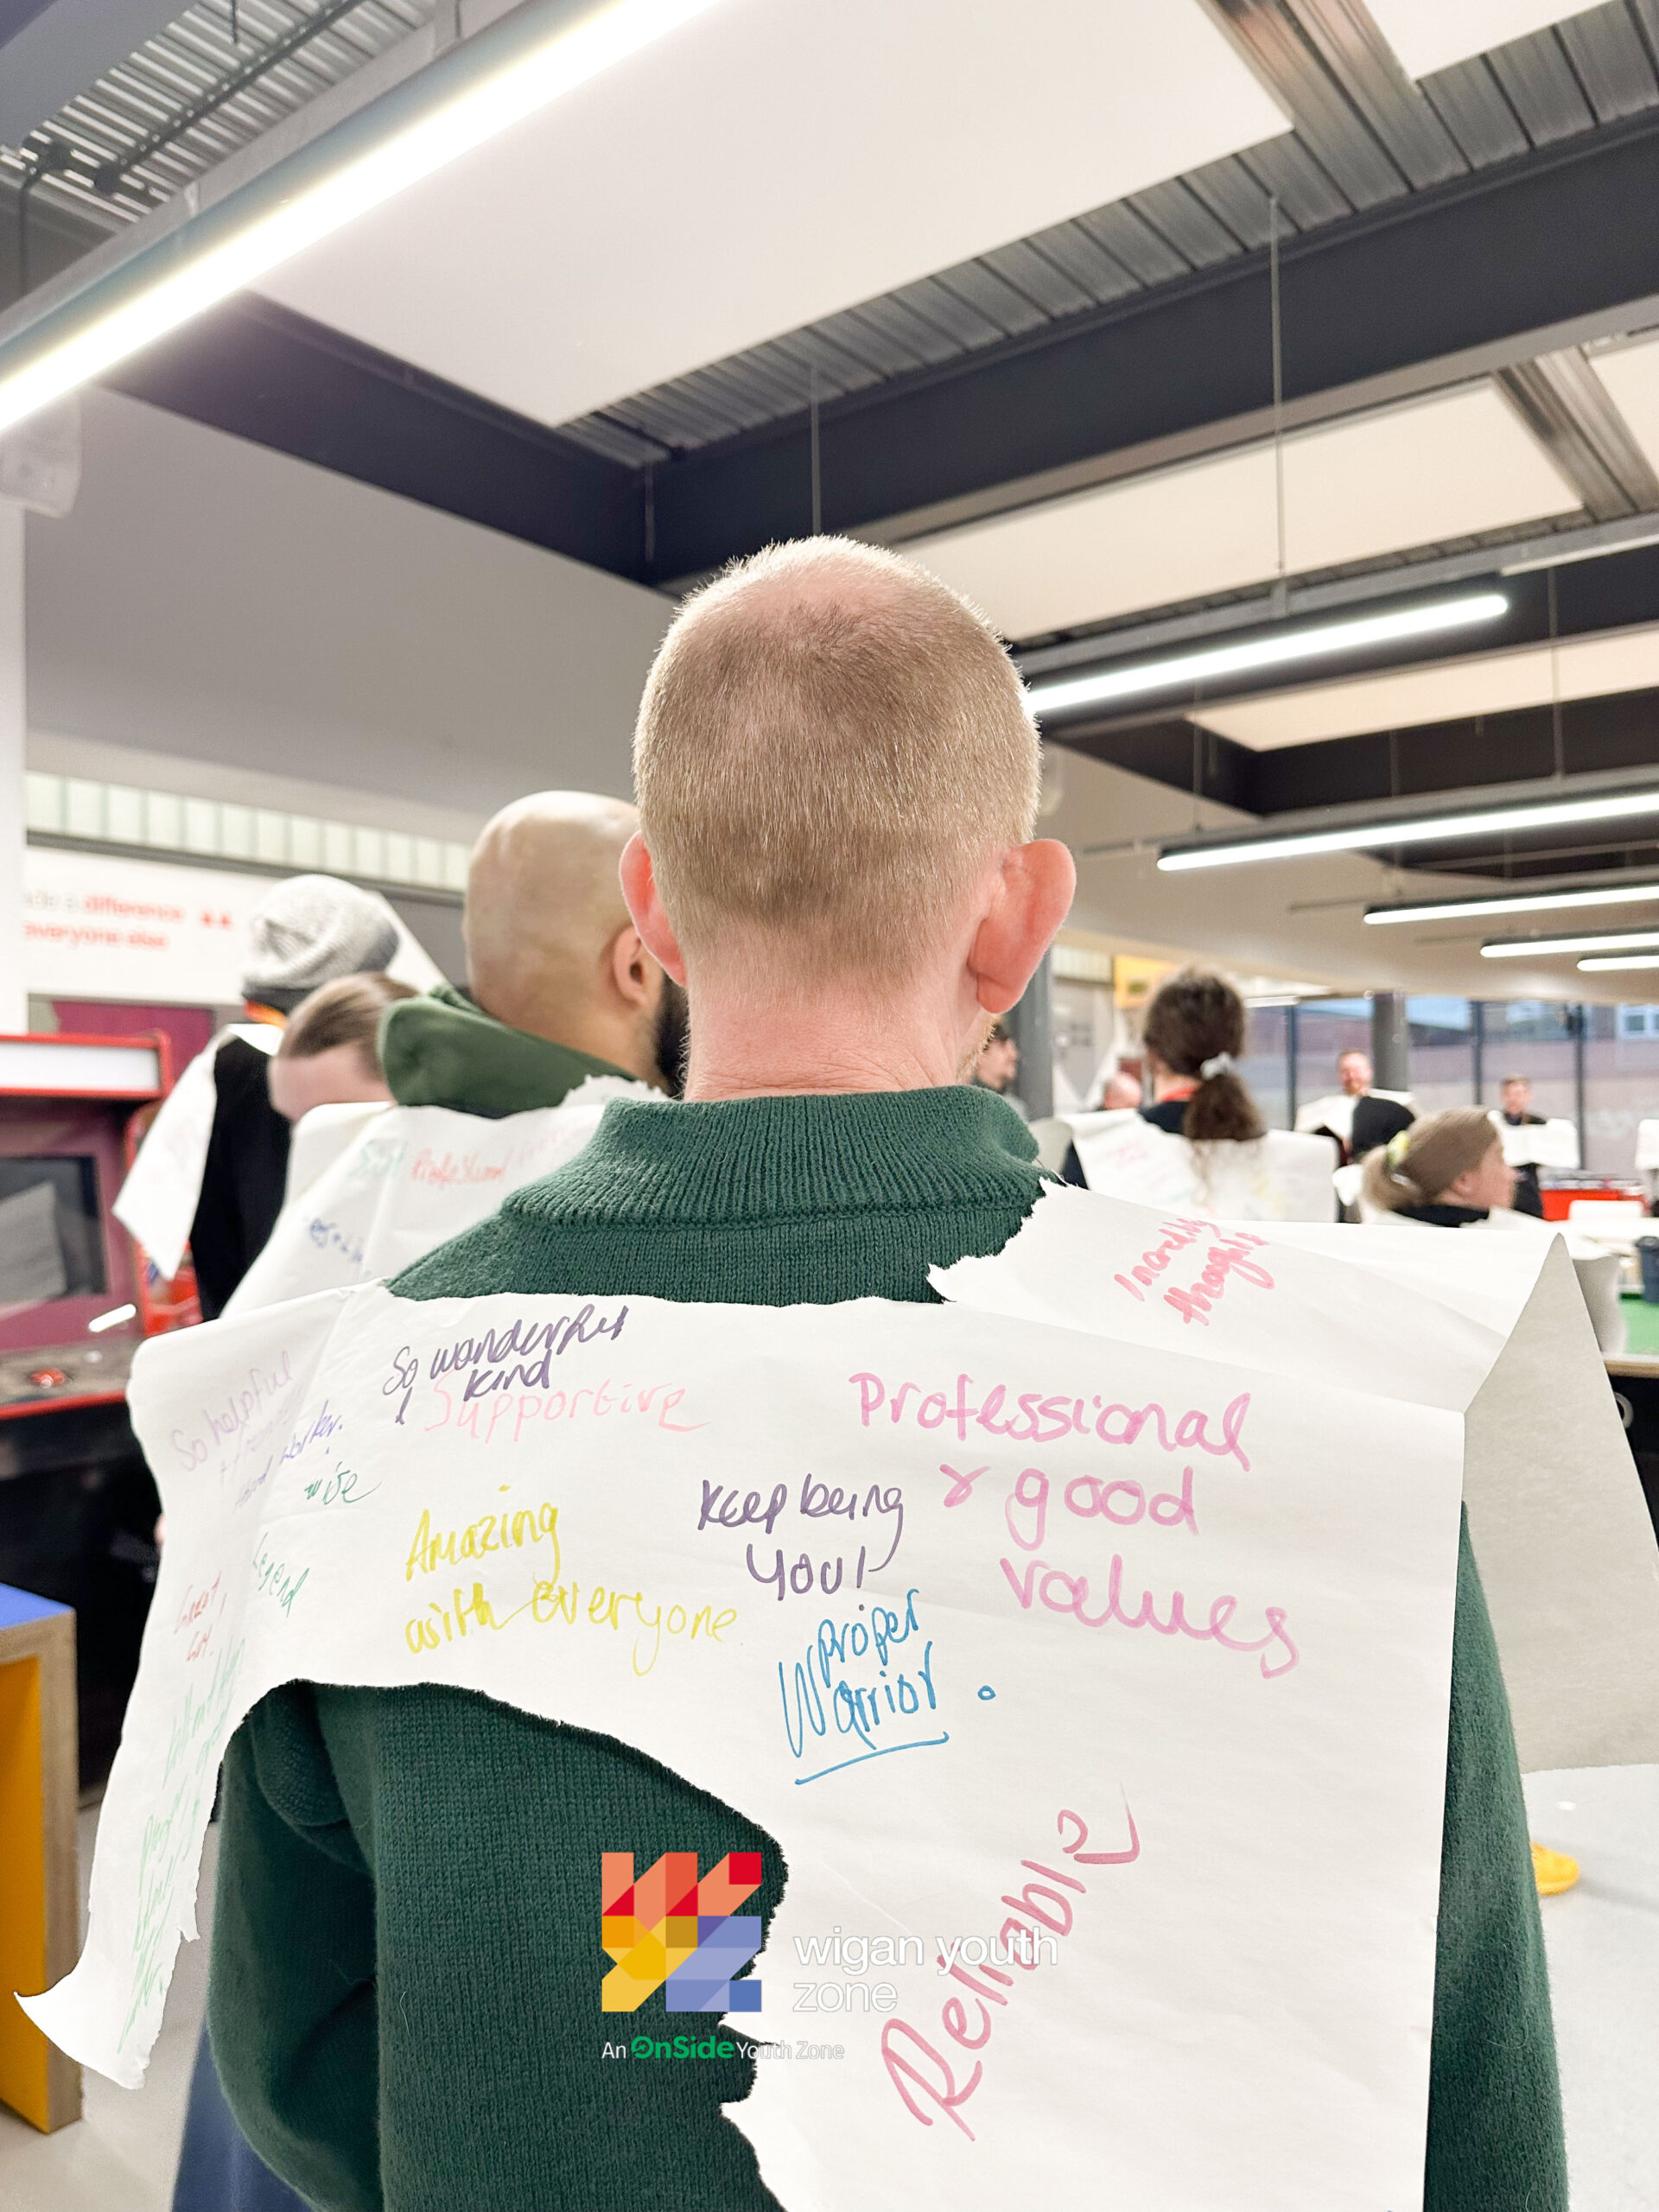 difference
everyone else
Professional
So wonderful
kind
Supportive
So helpful
worker.
wise
Legend
Great
Amazing
with everyone
Keep being
you!
Professional
& good
values
proper
Warrior.
Reliable
thoughts
wigan youth
zone
An OnSide Youth Zone